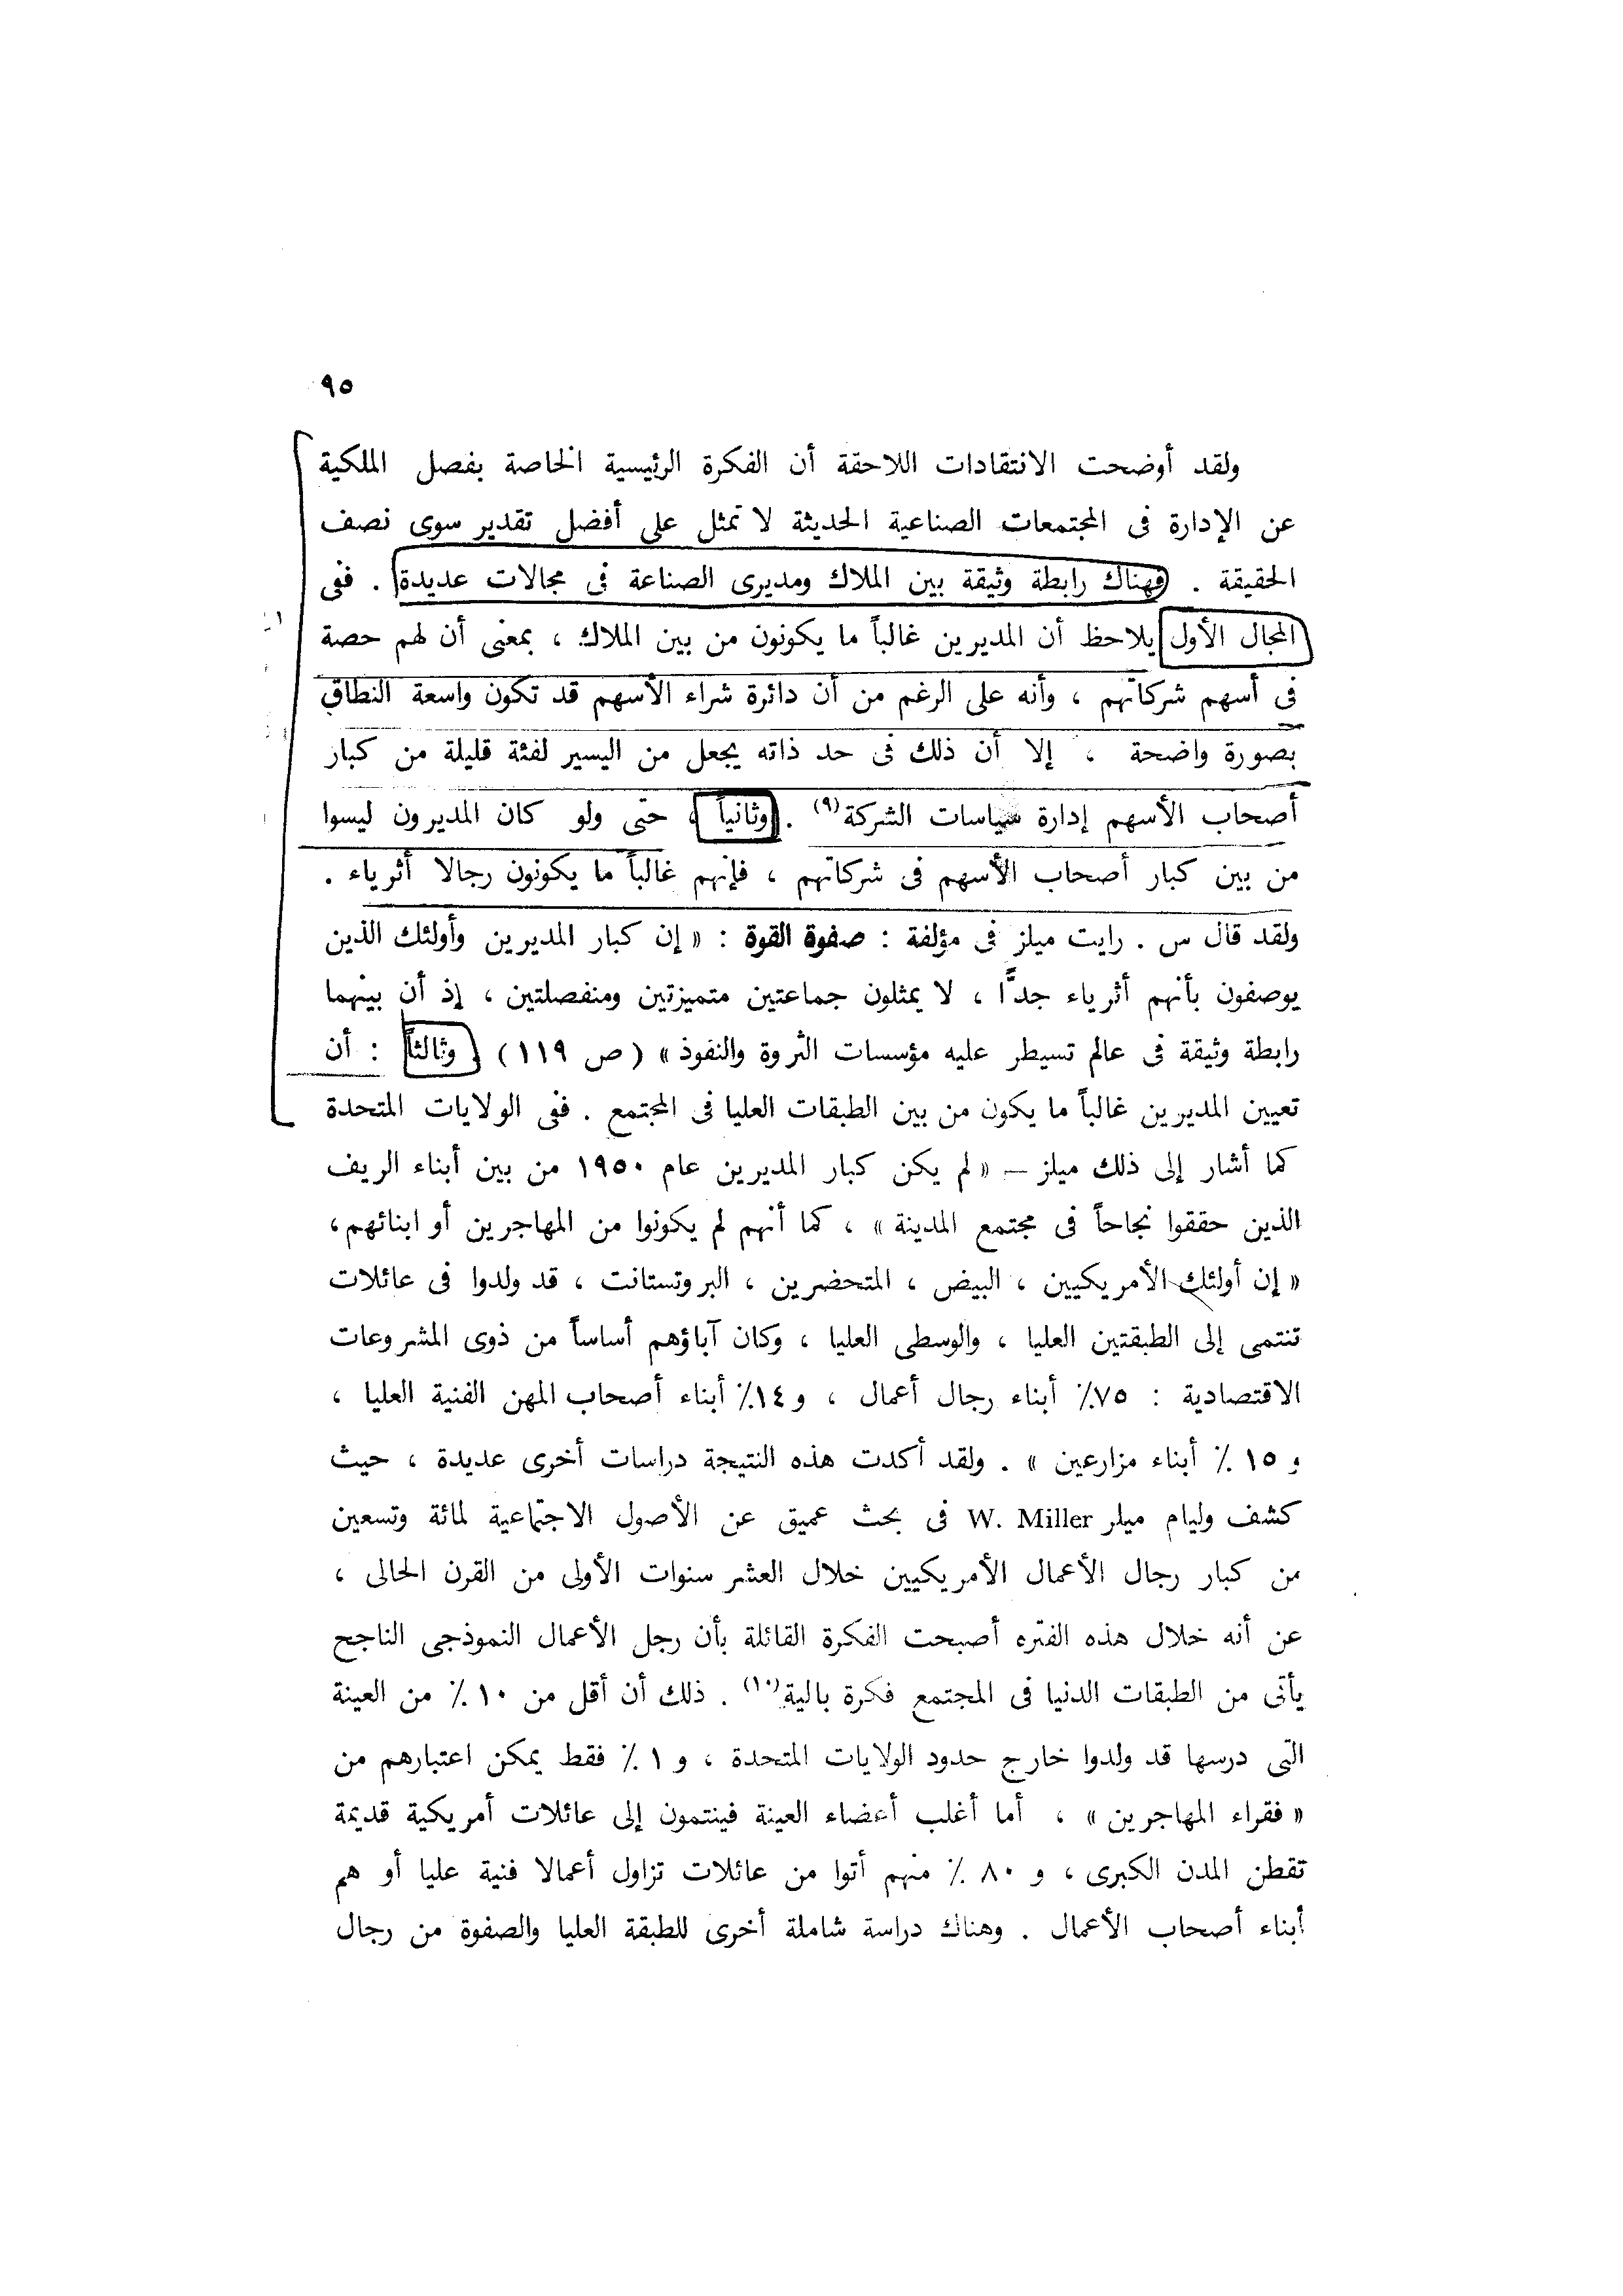 ٩٥
ولقد أوضحت الانتقادات اللاحقة أن الفكرة الرئيسية الخاصة بفصل الملكية
عن الإدارة فى المجتمعات الصناعية الحديثة لا تمثل على أفضل تقدير سوى نصف
الحقيقة . فهناك رابطة وثيقة بين الملاك ومديرى الصناعة فى مجالات عديدة . ففى
المجال الأول يلاحظ أن المديرين غالباً ما يكونون من بين الملاك ، بمعنى أن لهم حصة
فى أسهم شركاتهم ، وأنه على الرغم من أن دائرة شراء الأسهم قد تكون واسعة النطاق
بصورة واضحة ، إلا أن ذلك فى حد ذاته يجعل من اليسير لفئة قليلة من كبار
أصحاب الأسهم إدارة سياسات الشركة(٩) . وثانياً ، حتى ولو كان المديرون ليسوا
من بين كبار أصحاب الأسهم فى شركاتهم ، فإنهم غالباً ما يكونون رجالا أثرياء .
ولقد قال س . رايت ميلز فى مؤلفة : صفوة القوة : « إن كبار المديرين وأولئك الذين
يوصفون بأنهم أثرياء جدًّا ، لا يمثلون جماعتين متميزتين ومنفصلتين ، إذ أن بينهما
رابطة وثيقة فى عالم تسيطر عليه مؤسسات الثروة والنفوذ » ( ص ١١٩ ) . وثالثاً : أن
تعيين المديرين غالباً ما يكون من بين الطبقات العليا فى المجتمع . ففى الولايات المتحدة
كما أشار إلى ذلك ميلز – « لم يكن كبار المديرين عام ١٩٥٠ من بين أبناء الريف
الذين حققوا نجاحاً فى مجتمع المدينة » ، كما أنهم لم يكونوا من المهاجرين أو ابنائهم ،
« إن أولئك الأمريكيين ، البيض ، المتحضرين ، البروتستانت ، قد ولدوا فى عائلات
تنتمى إلى الطبقتين العليا ، والوسطى العليا ، وكان آباؤهم أساساً من ذوى المشروعات
الاقتصادية : ٧٥٪ أبناء رجال أعمال ، و ١٤٪ أبناء أصحاب المهن الفنية العليا ،
و ١٥ ٪ أبناء مزارعين » . ولقد أكدت هذه النتيجة دراسات أخرى عديدة ، حيث
كشف وليام ميلر W. Miller فى بحث عميق عن الأصول الاجتماعية لمائة وتسعين
من كبار رجال الأعمال الأمريكيين خلال العشر سنوات الأولى من القرن الحالى ،
عن أنه خلال هذه الفتره أصبحت الفكرة القائلة بأن رجل الأعمال النموذجى الناجح
يأتى من الطبقات الدنيا فى المجتمع فكرة بالية(١٠) . ذلك أن أقل من ١٠ ٪ من العينة
التى درسها قد ولدوا خارج حدود الولايات المتحدة ، و ١ ٪ فقط يمكن اعتبارهم من
« فقراء المهاجرين » ، أما أغلب أعضاء العينة فينتمون إلى عائلات أمريكية قديمة
تقطن المدن الكبرى ، و ٨٠ ٪ منهم أتوا من عائلات تزاول أعمالا فنية عليا أو هم
أبناء أصحاب الأعمال . وهناك دراسة شاملة أخرى للطبقة العليا والصفوة من رجال